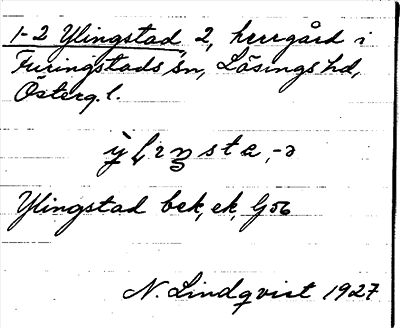 1-2 Ylingstad 2, herrgård i
Furingstads sn, Lösings hd,
Österg. l.
ỳlıŋsta, -ə
Ylingstad bek, ek, Gök
N. Lindqvist 1927